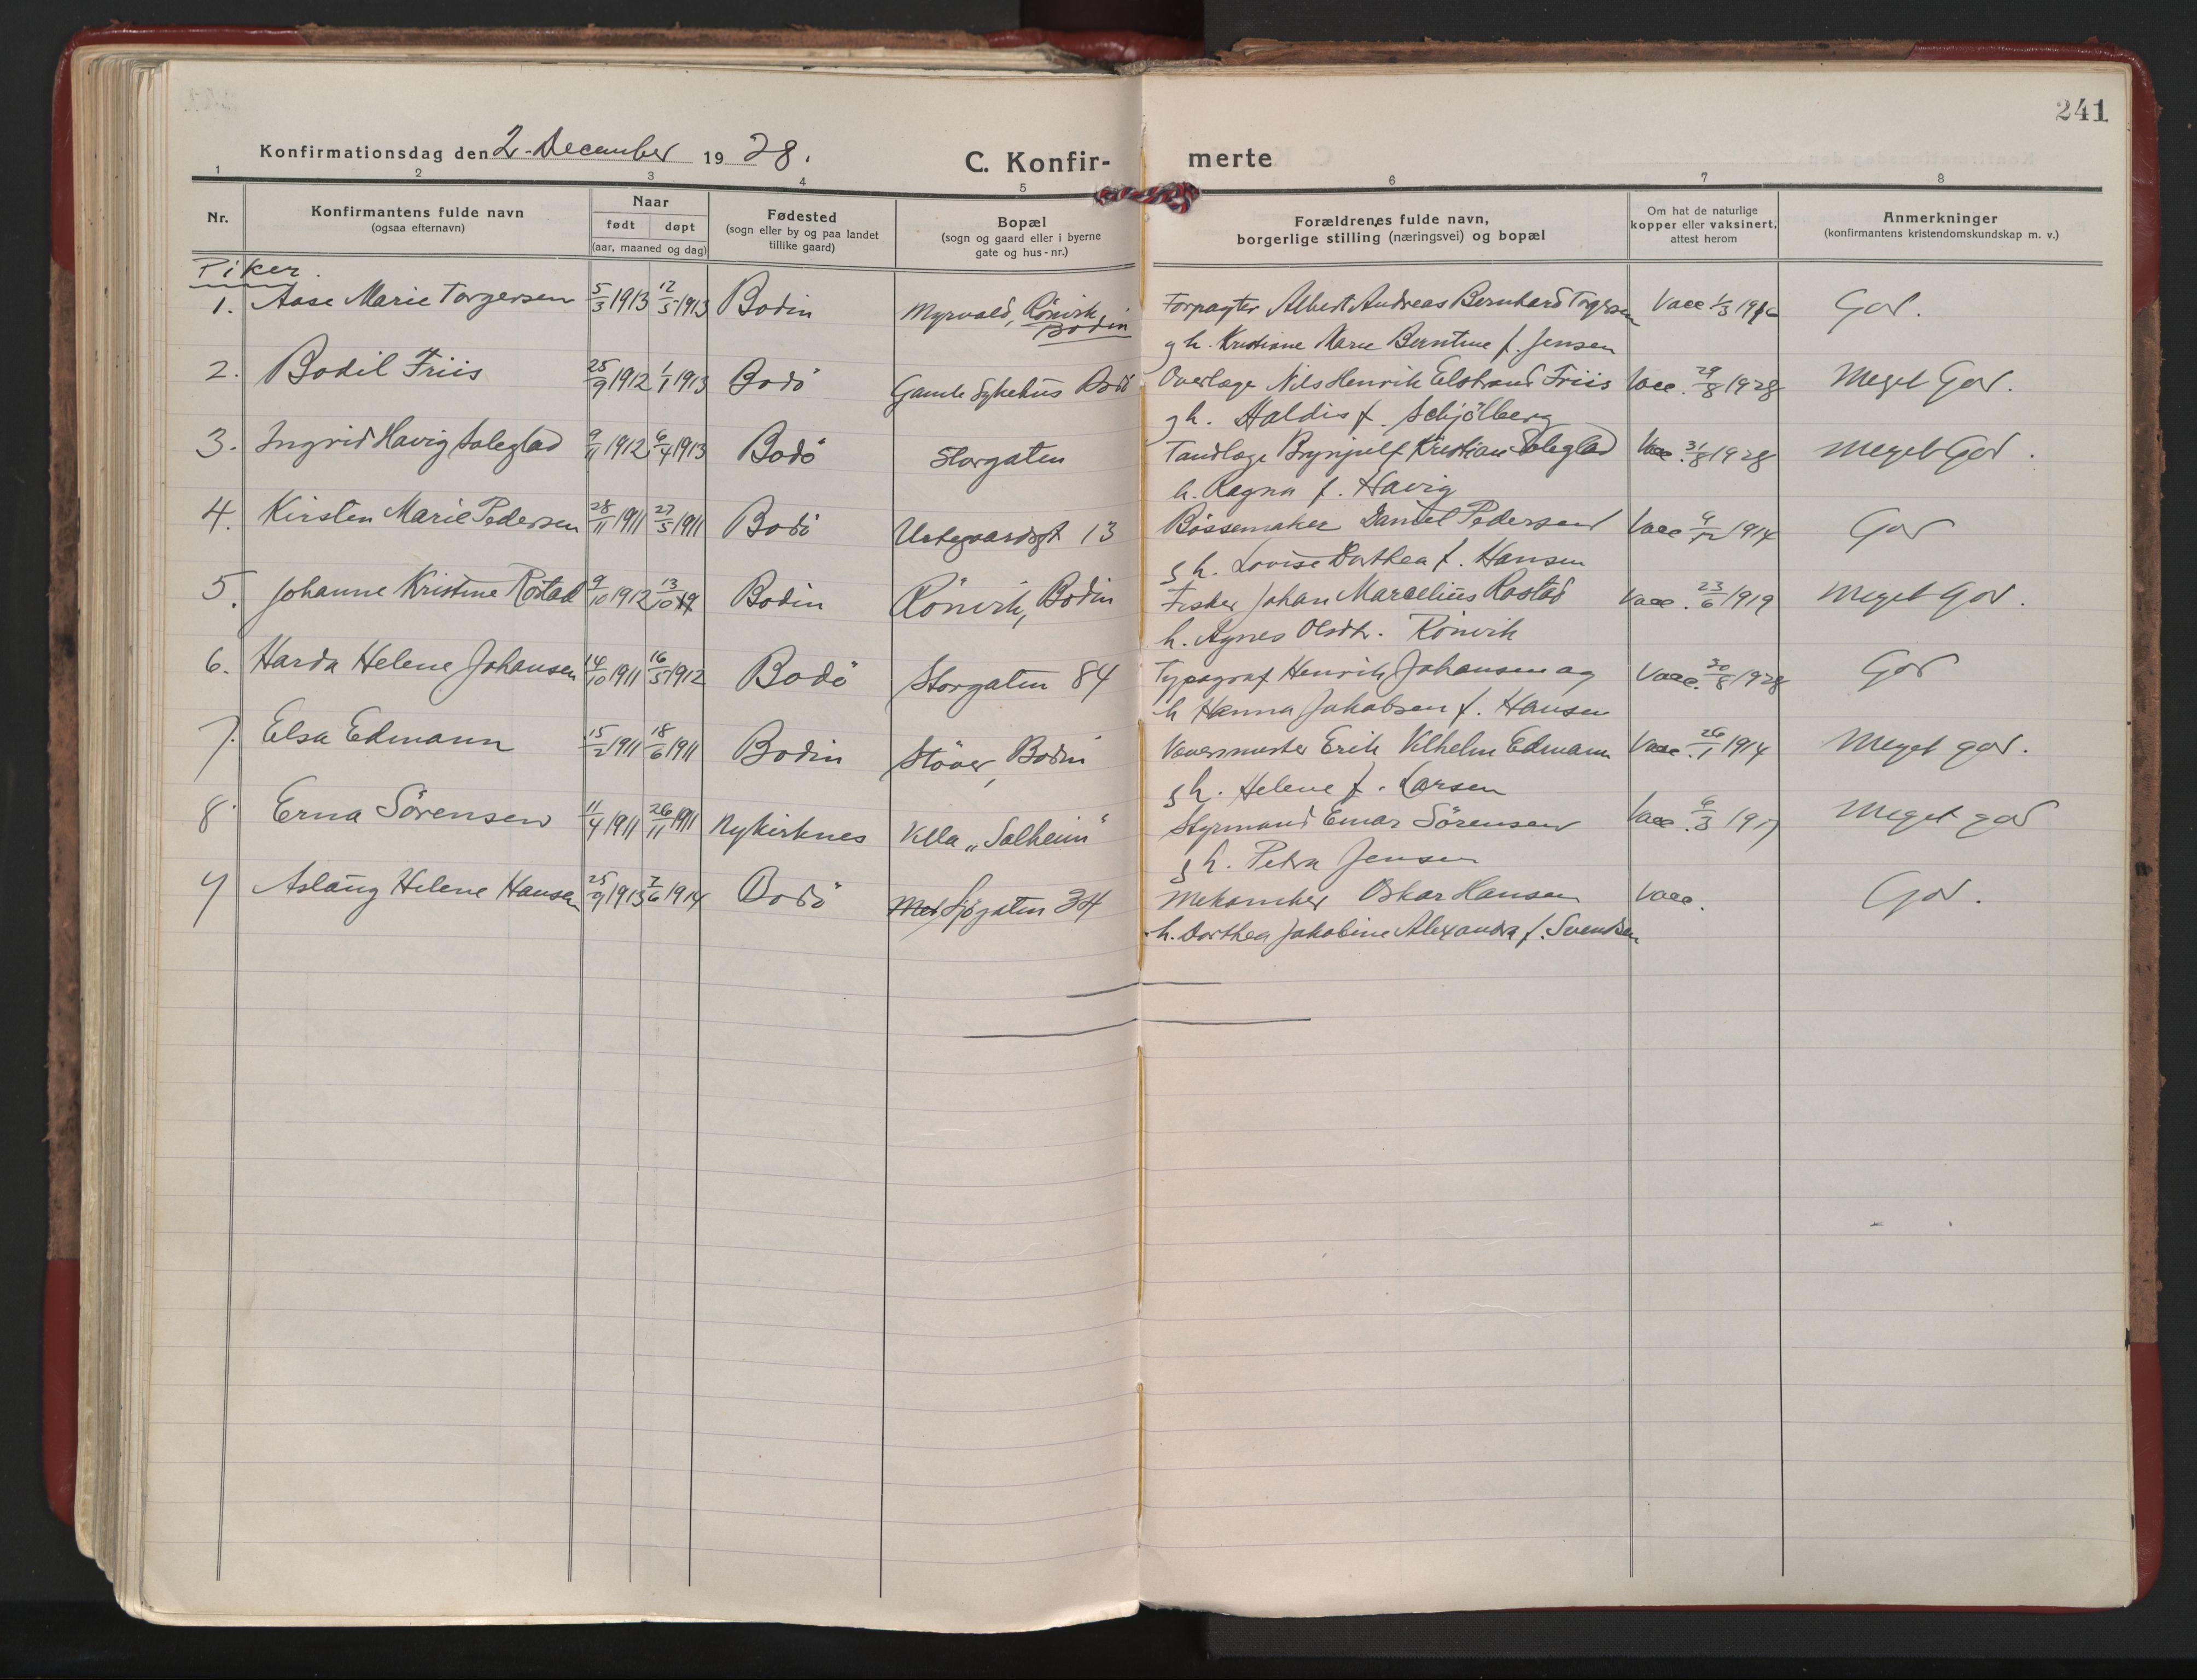 241
Konfirmationsdag den 2. December 1928.
C. Konfirmerte
1 2 3 4 5 6 7 8
Nr.
Konfirmantens fulde navn
(ogsaa efternavn)
Naar
født døpt
(aar, maaned og dag)
Fødested
(sogn eller by og paa landet
tillike gaard)
Bopæl
(sogn og gaard eller i byerne
gate og hus-nr.)
Forældrenes fulde navn,
borgerlige stilling (næringsvei) og bopæl
Om hat de naturlige
kopper eller vaksinert,
attest herom
Anmerkninger
(konfirmantens kristendomskundskap m. v.)
Piker.
1. Aase Marie Torgersen 5/3 1913 12/5 1913 Bodin Myrvold, Rönvik, Bodin Forpagter Albert Andreas Bernhard Torgersen Vacc 1/3 1916 God.
g h. Kristiane Marie Berntine f. Jensen
2. Bodil Friis 25/9 1912 1/1 1913 Bodö Gamle Sykehus Bodö Overlæge Nils Henrik Elstrand Friis Vacc. 29/8 1928 Meget God.
g h. Haldis f. Schjölberg
3. Ingrid Havig Soleglad 9/11 1912 6/4 1913 Bodö Storgaten Tandlæge Brynjulf Kristian Soleglad Vacc. 31/8 1928 Meget God.
h. Ragna f. Havig
4. Kirsten Marie Pedersen 28/11 1911 27/5 1911 Bodö 13 Bössemaker Daniel Pedersen Vacc 9/12 1914 God
g h. Lovise Dorthea f. Hansen
5. Johanne Kristine Röstad 9/10 1912 13/10 Bodin Rönvik, Bodin Fisker Johan Marcelius Rostad Vacc. 23/6 1919 Meget God.
h. Agnes Olsdtr. Rönvik
6. Harda Helene Johansen 14/10 1911 16/5 1912 Bodö Storgaten 84 Typograf Henrik Johansen og Vacc. 30/8 1928 God
h Hanna Jakobsen f. Hansen
7. Elsa Edmann 15/2 1911 18/6 1911 Bodin Stöver, Bodin Erik Vilhelm Edmann Vacc. 26/1 1914 Meget god.
g h. Helene f. Larsen
8. Erna Sörensen 11/4 1911 26/11 1911 Nykirknes Villa „Solheim" Styrmand Einar Sörensen Vacc. 6/3 1917 Meget god
g h. Petra Jensen
9 Aslaug Helene Hansen 25/9 1913 7/6 1914 Bodö Sjögaten 34 Mekaniker Oskar Hansen Vacc. God.
h. Dorthea Jakobine Alexandra f. Svendsen